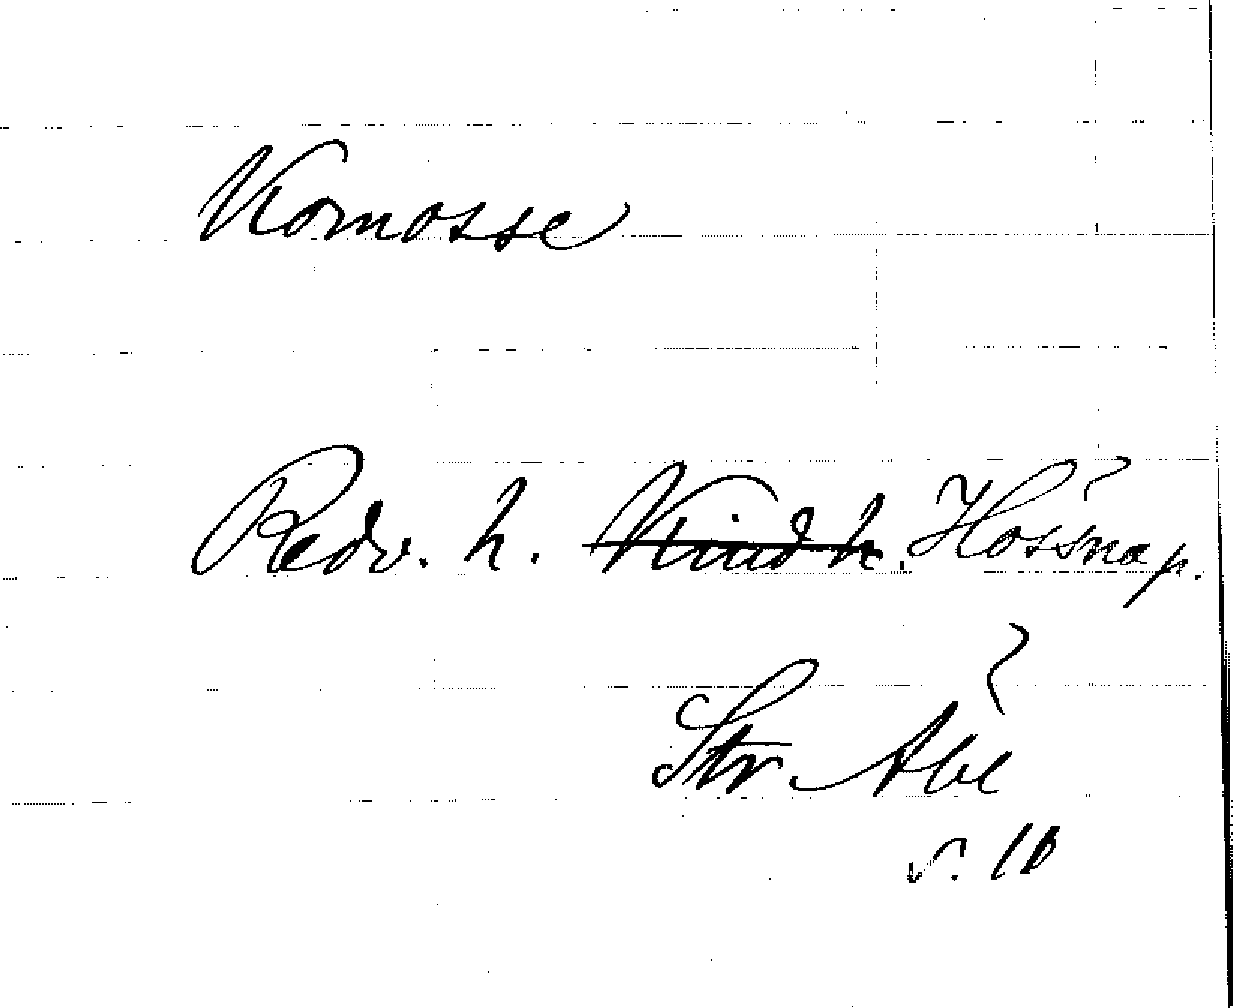 Komosse
Redv. h. Kind h. Hössna p.
Str. Abl
s. 16